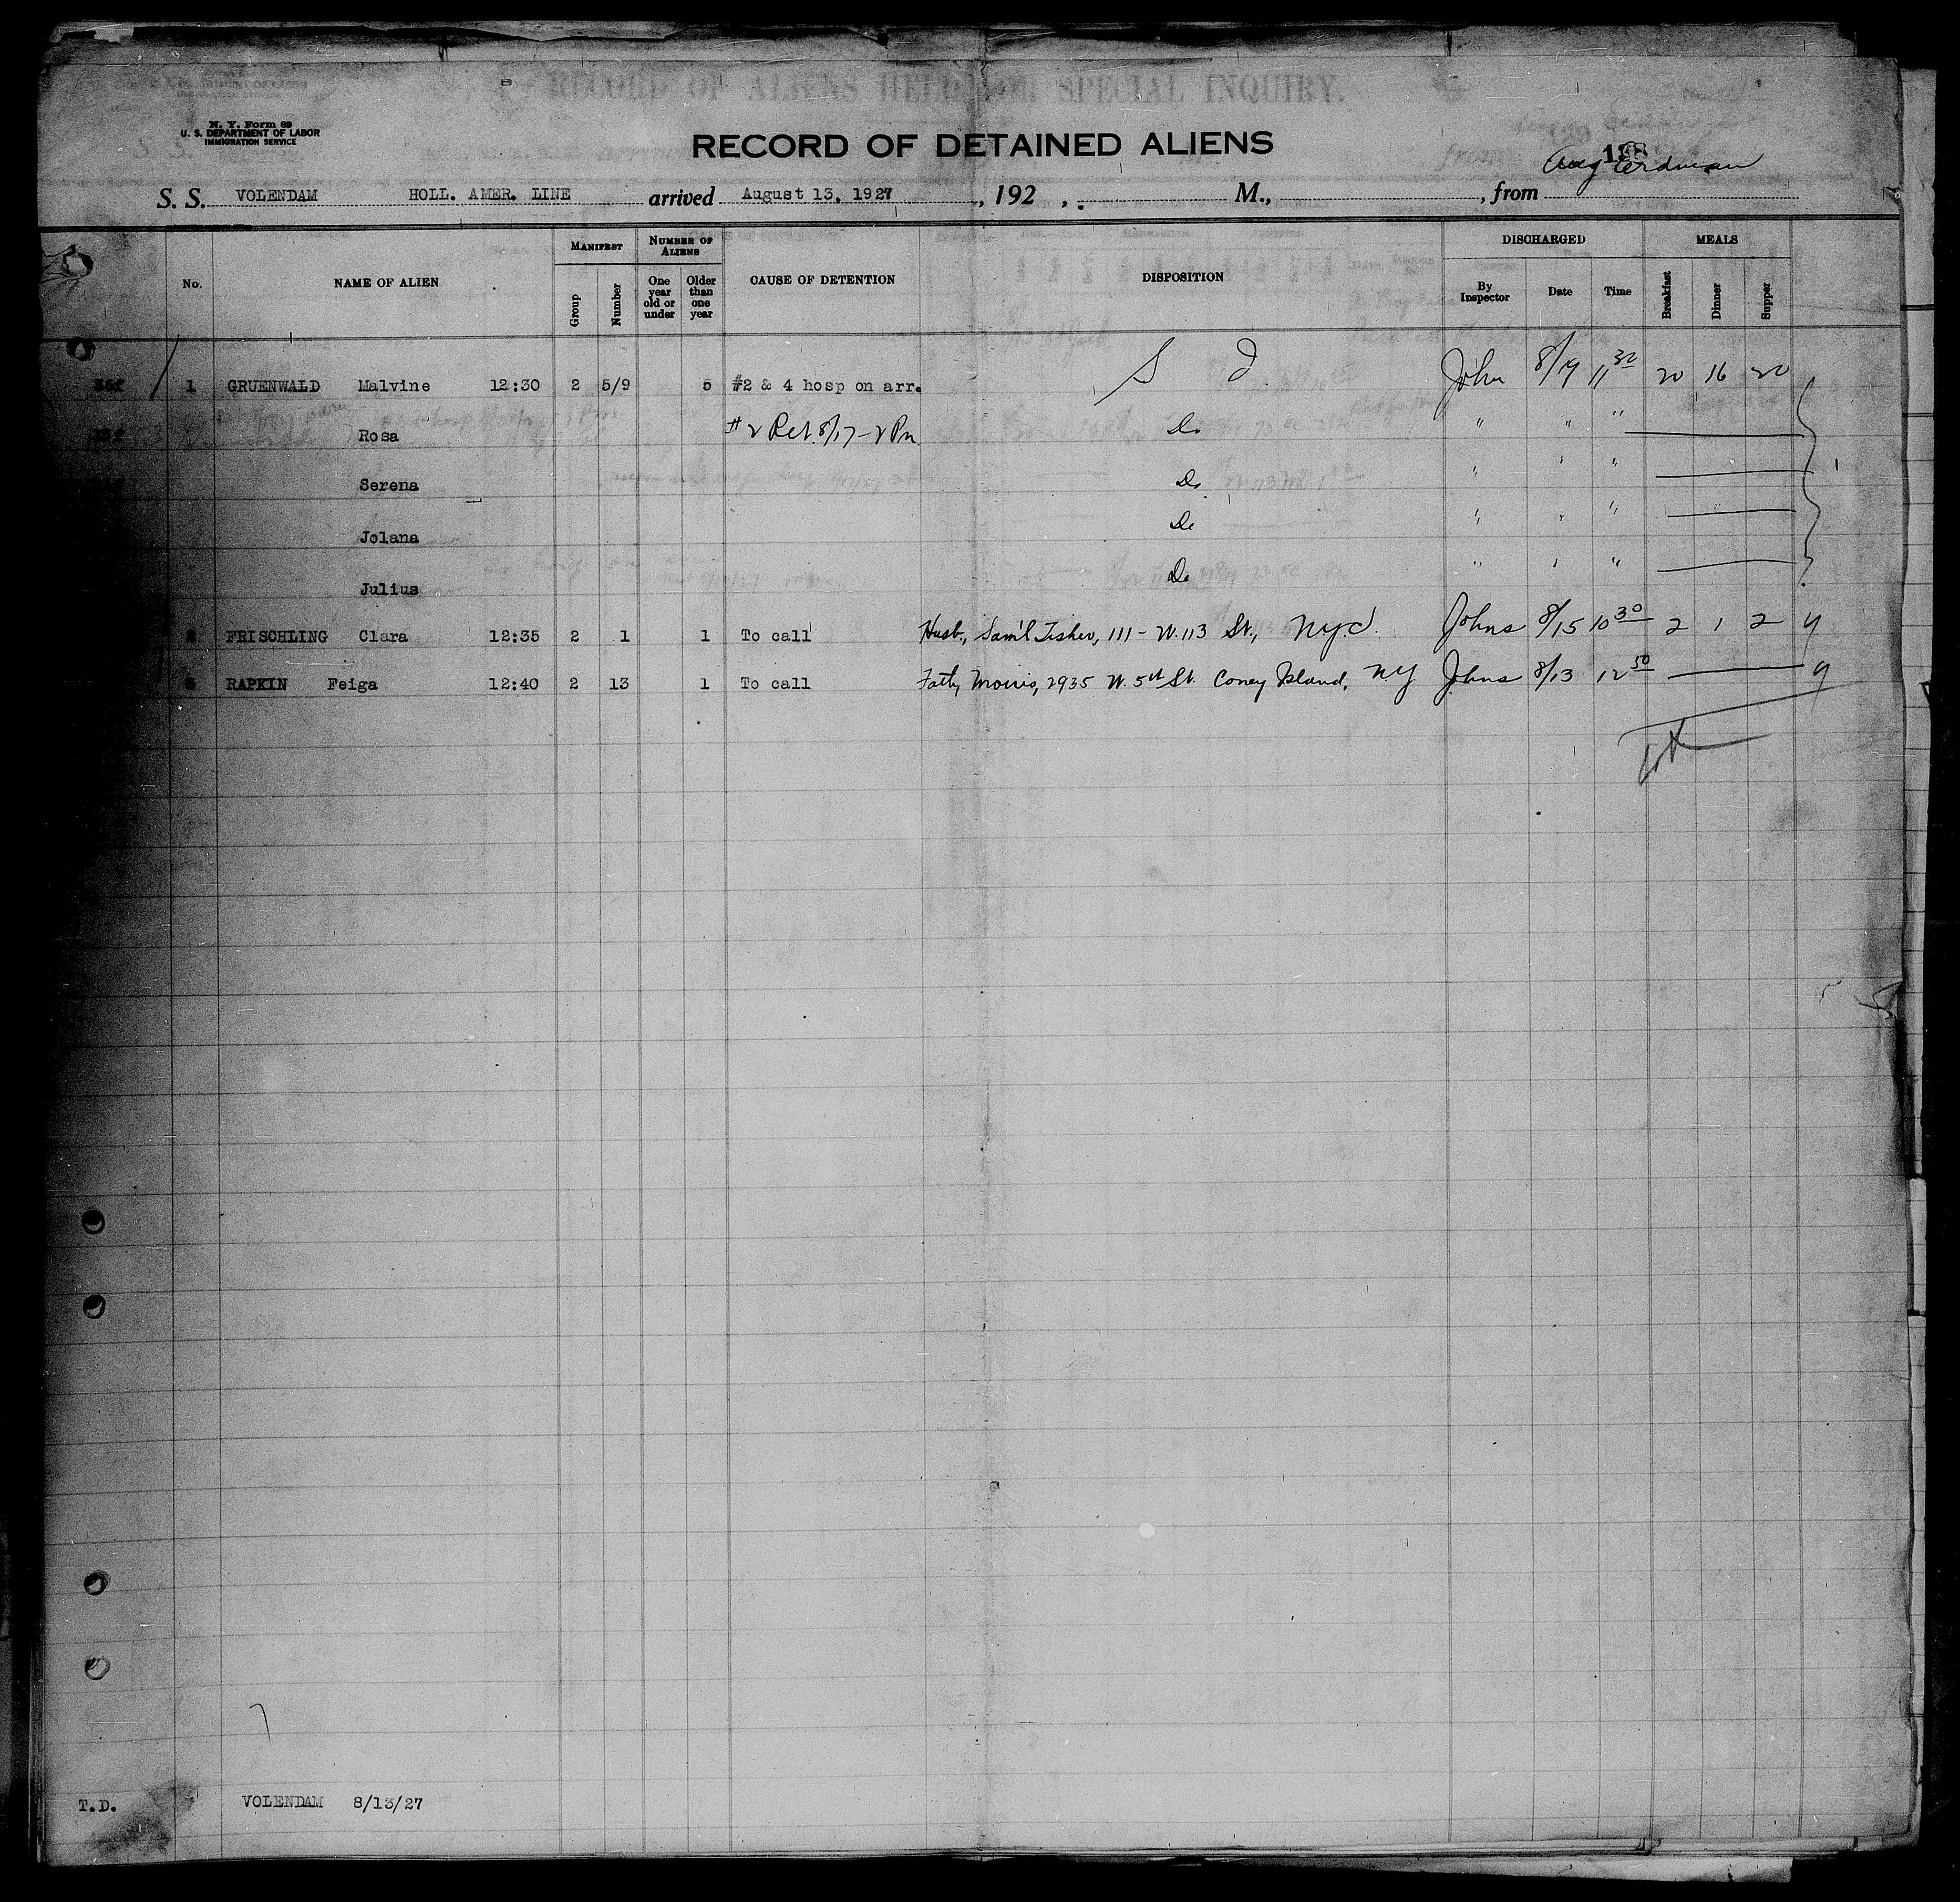 RECORD OF ALIENS HELD FOR SPECIAL INQUIRY.
N. Y. Form 89
U. S. DEPARTMENT OF LABOR
IMMIGRATION SERVICE
RECORD OF DETAINED ALIENS
S. S. VOLENDAM HOLL. AMER. LINE arrived August 13, 1927 , 192 , . M., , from
No. NAME OF ALIEN MANIFEST Group Number NUMBER OF ALIENS One year old or under Older than one year CAUSE OF DETENTION DISPOSITION DISCHARGED By Inspector Date Time MEALS Breakfast Dinner Supper
1 GRUENWALD Malvine 12:30 2 5/9 5 #2 & 4 hosp on arr. S I John 8/19 11 30 20 16 20
Rosa #2 Ret. 8/17 - 2 Pm. Do " " "
Serena Do " " "
Jolana Do " " "
Julius Do " " "
2 FRISCHLING Clara 12:35 2 1 1 To call Husb., Sam'l Fisher, 111 - W. 113 St., NYC. Johns 8/15 10 30 2 1 2 y
RAPKIN Feiga 12:40 2 13 1 To call Fath, Morris, 2935 W. 5th St. Coney Island, NY Johns 8/13 12 50 y
T.D. VOLENDAM 8/13/27